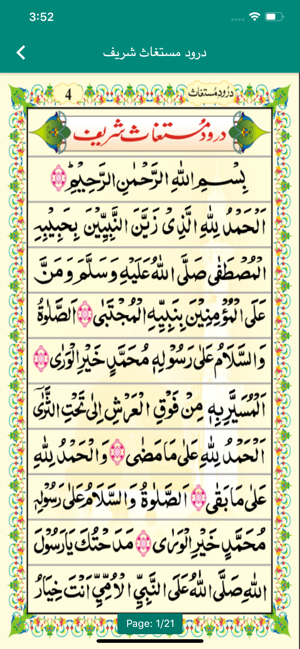 3:52
درود مستغاث شریف
4
درود مستغاث
درود مُستغاث شریف
بِسْمِ اللهِ الرَّحْمٰنِ الرَّحِيْمِ
اَلْحَمْدُ لِلّٰهِ الَّذِىْ زَيَّنَ النَّبِيّٖنَ بِحَبِيْبِهِ
الْمُصْطَفٰى صَلَّى اللهُ عَلَيْهِ وَسَلَّمَ وَمَنَّ
عَلَى الْمُؤْمِنِيْنَ بِنَبِيِّهِ الْمُجْتَبٰى اَلصَّلٰوةُ
وَالسَّلَامُ عَلٰى رَسُوْلِهٖ مُحَمَّدٍ خَيْرِ الْوَرٰى
اَلْمُسَيَّرِ بِهٖ مِنْ فَوْقِ الْعَرْشِ اِلٰى تَحْتِ الثَّرٰى
اَلْحَمْدُ لِلّٰهِ عَلٰى مَا مَضٰى وَالْحَمْدُ لِلّٰهِ
عَلٰى مَا بَقٰى اَلصَّلٰوةُ وَالسَّلَامُ عَلٰى رَسُوْلِهٖ
مُحَمَّدٍ خَيْرِ الْوَرٰى مَدَحْتُكَ يَا رَسُوْلَ
اللهِ صَلَّى اللهُ عَلَى النَّبِيِّ الْاُمِّيِّ اَنْتَ خِيَارُ
Page: 1/21